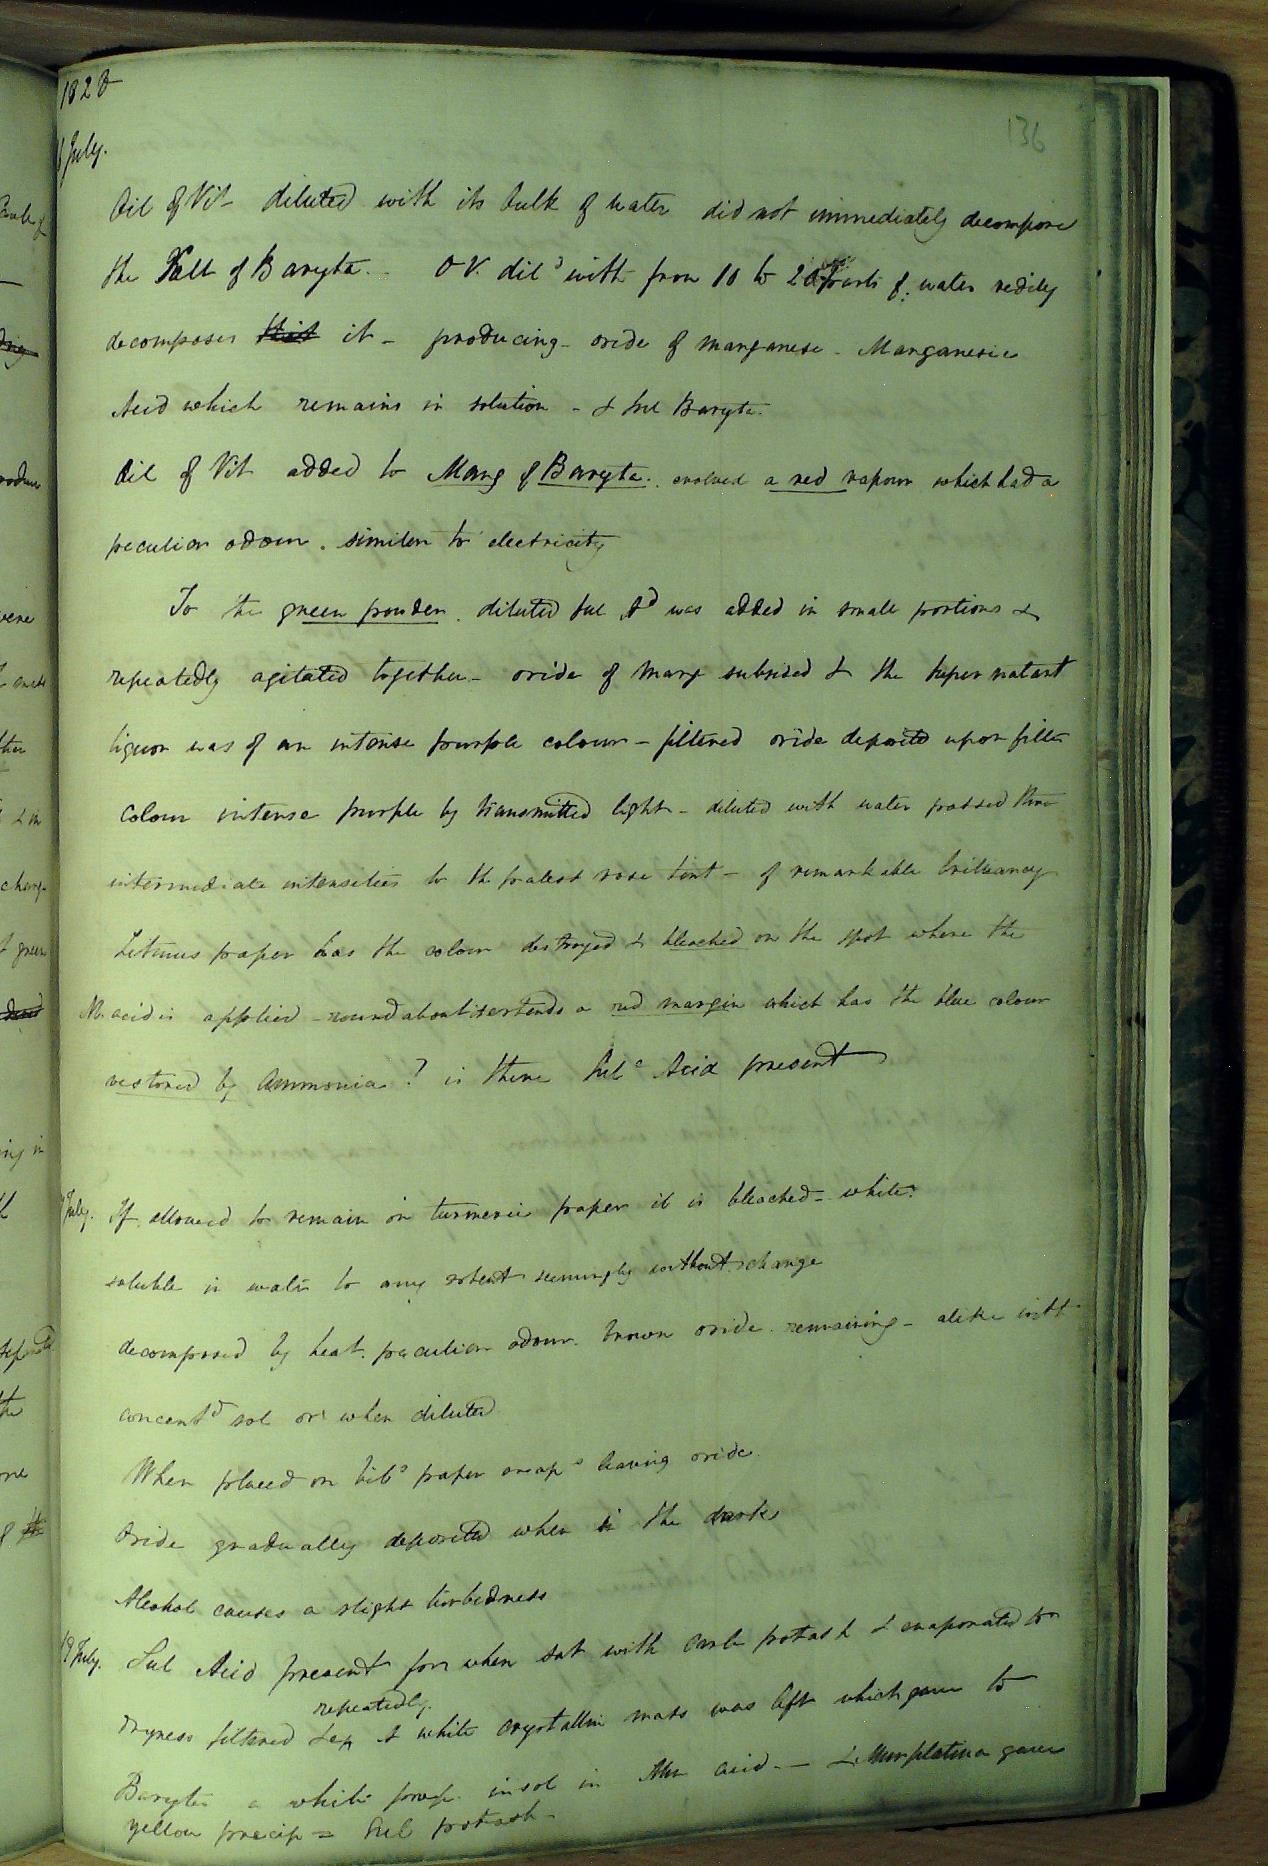 1828
136
July.
Oil of Vit diluted with its bulk of water did not immediately decompose
the Salt of Baryta. O V. dild with from 10 to 20 parts of water redily
decomposes this it - producing - oxide of manganese - Manganesic
Acid which remains in solution - & Sul Baryta.
Oil of Vit added to Mang of Baryta. evolved a red vapour which had a
peculiar odour. similar to electricity
To the green powder. diluted Sul Ad was added in small portions &
repeatedly agitated together - oxide of mang subsided & the supernatant
liquor was of an intense purple colour - filtered oxide deposited upon filter
colour intense purple by transmitted light - diluted with water passed thro
intermediate intensities to the palest rose tint - of remarkable brilliancy
Litmus paper has the colour destroyed & bleached on the spot where the
acid is applied - round about it extends a red margin which has the blue colour
restored by Ammonia? is there Sulc Acid present
July. If allowed to remain on turmeric paper it is bleached - white.
soluble in water to any extent seemingly without change
decomposed by heat. peculiar odour. brown oxide remaining - alike with
concentd sol or when diluted
When placed on bibs paper evaps leaving oxide.
Oxide gradually deposited when in the dark
Alcohol causes a slight turbidness
19 July. Sul Acid present for when sat with Carb potash & evaporated to
repeatedly.
dryness filtered &c a white crystalline mass was left which gave to
Baryta a white precip. insol in Mur acid. - & Mur platina gave
yellow precip = Sul potash -